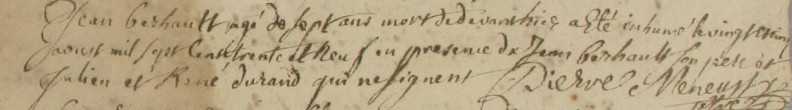 Jean berhault agé de sept ans mort dedevanthier a Eté inhumé le vingt et un
aoust mil sept Cent trente et Neuf en presence de Jean berhault Son pere et
Julien et René durand qui ne signent Pierre Meneust